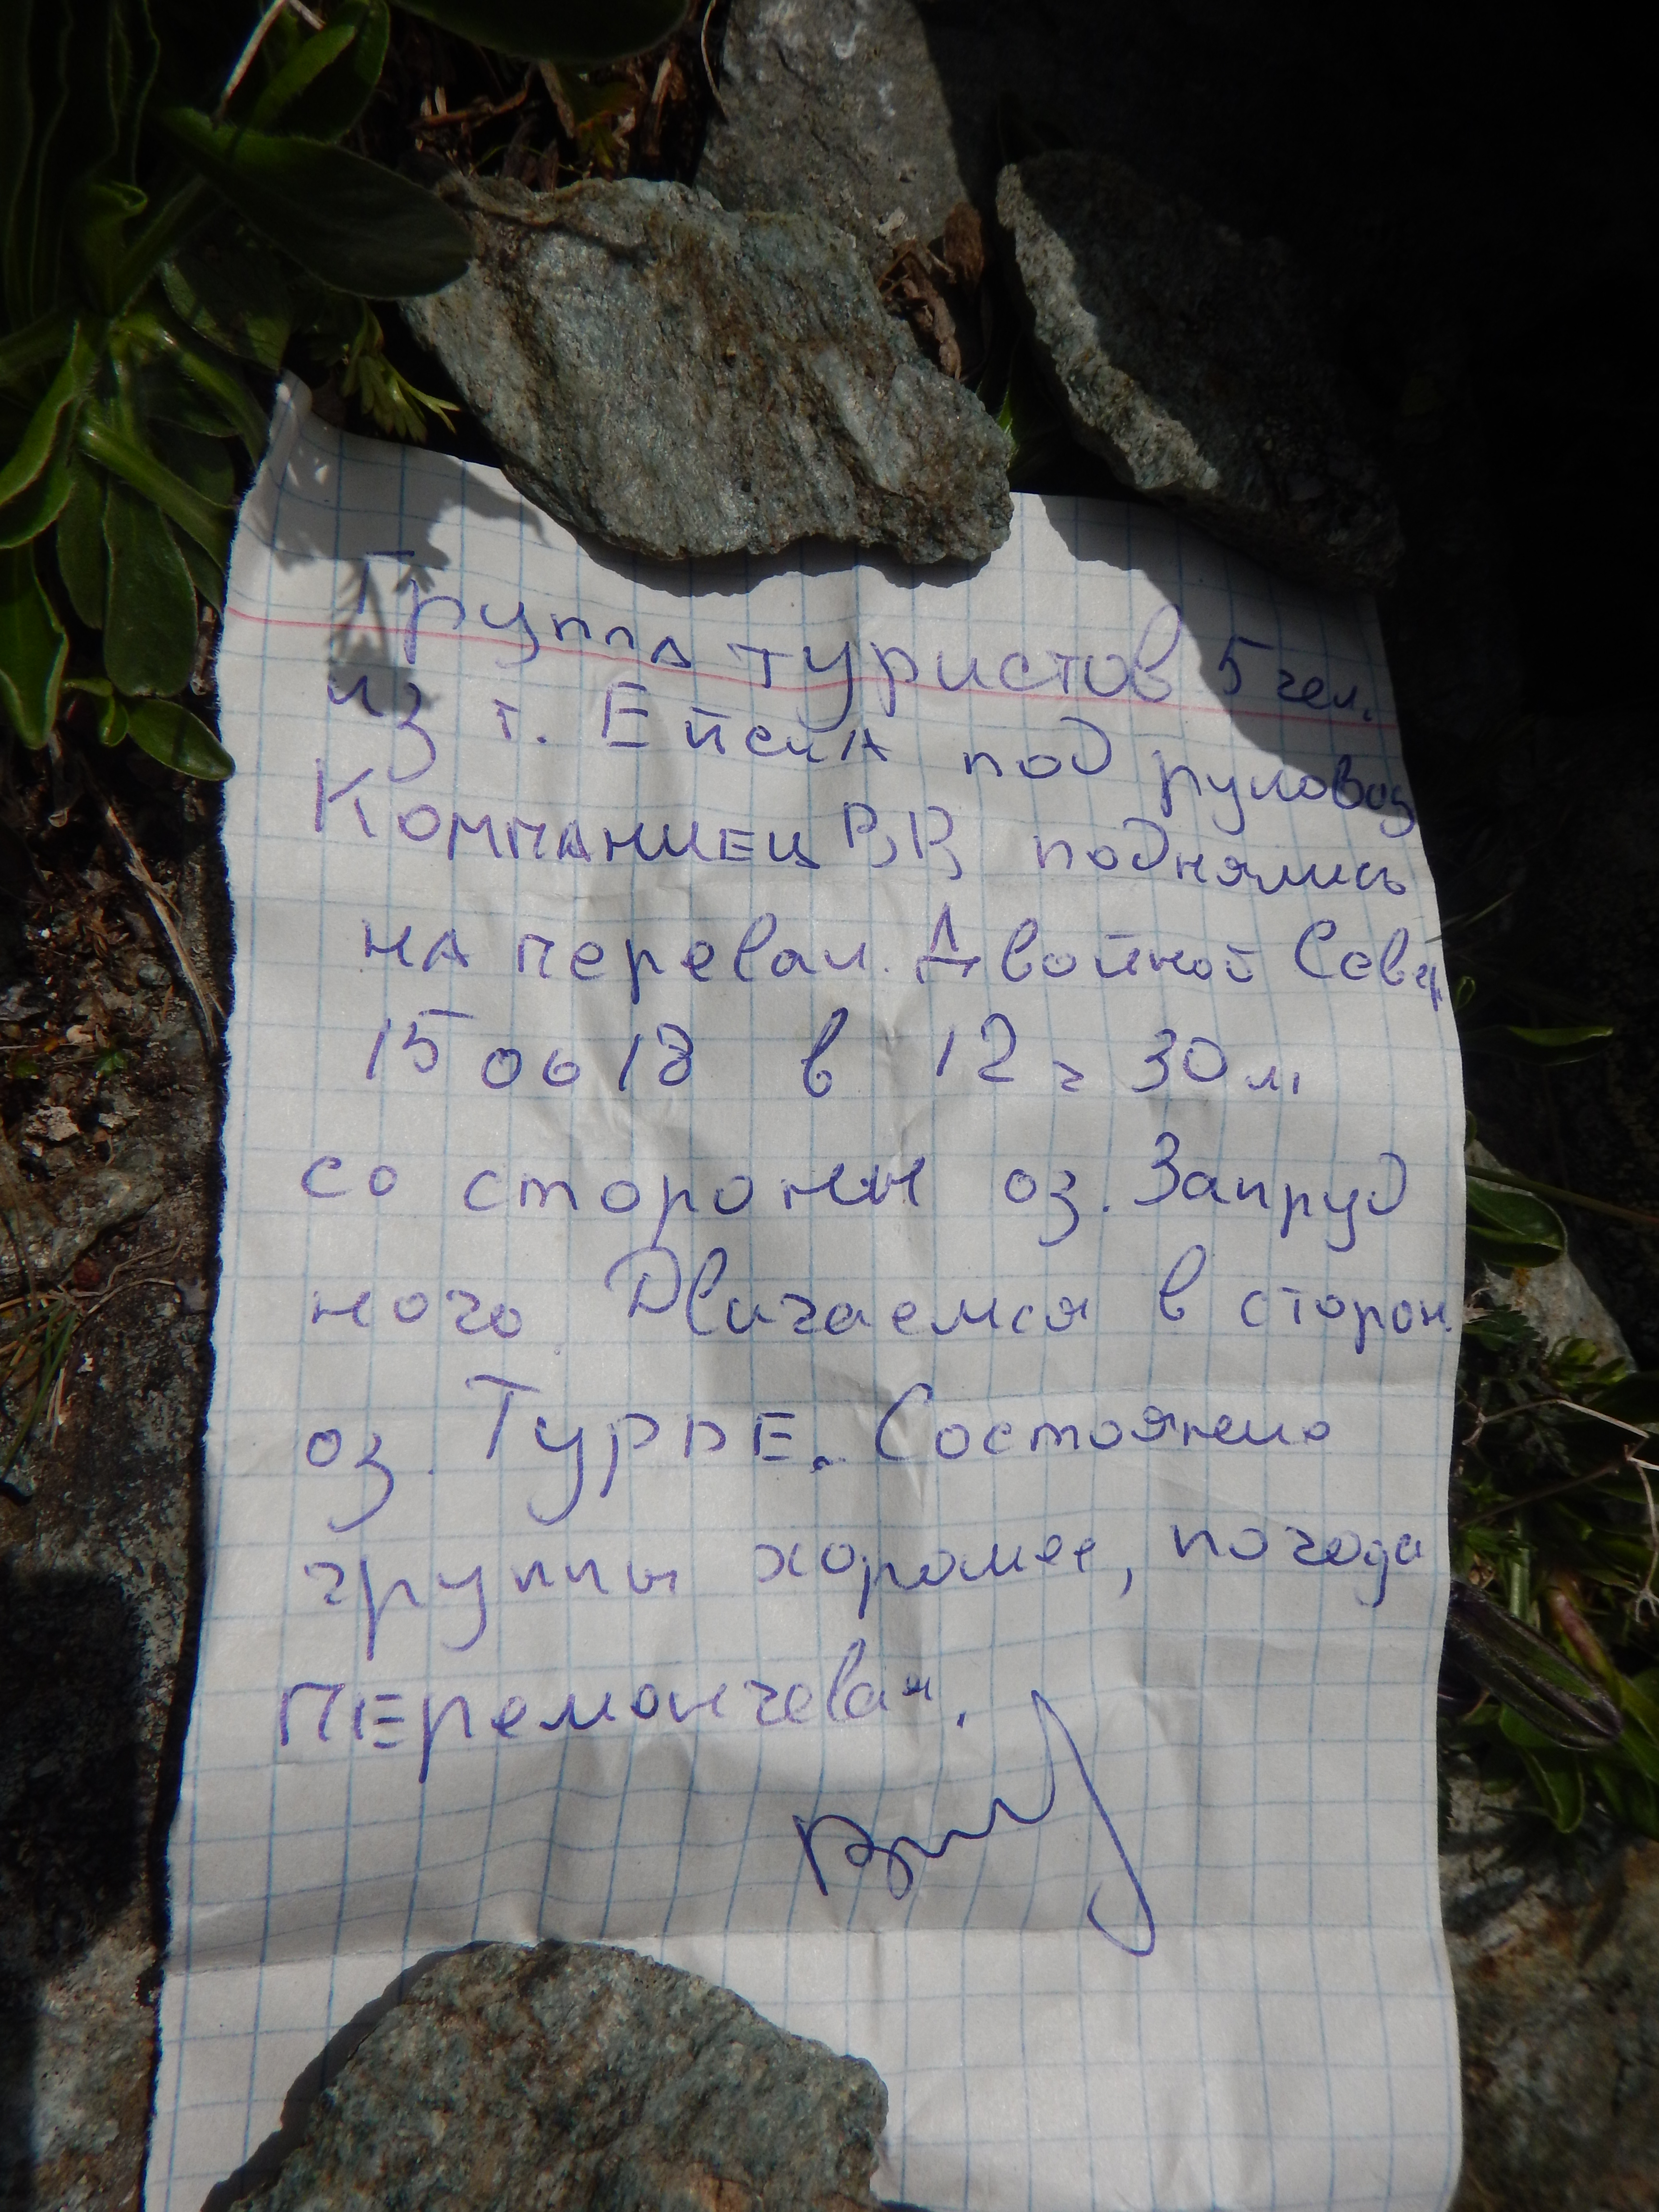 Группа туристов 5 чел.
из г. Ейска под руковод
Компаниец В,В, поднялись
на перевал Двойной Север
15 06 18 в 12 ч 30 м,
со стороны оз. Запруд
ного Двигаемся в сторон
оз. Турье. Состояние
группы хорошее, погода
переменчевая.